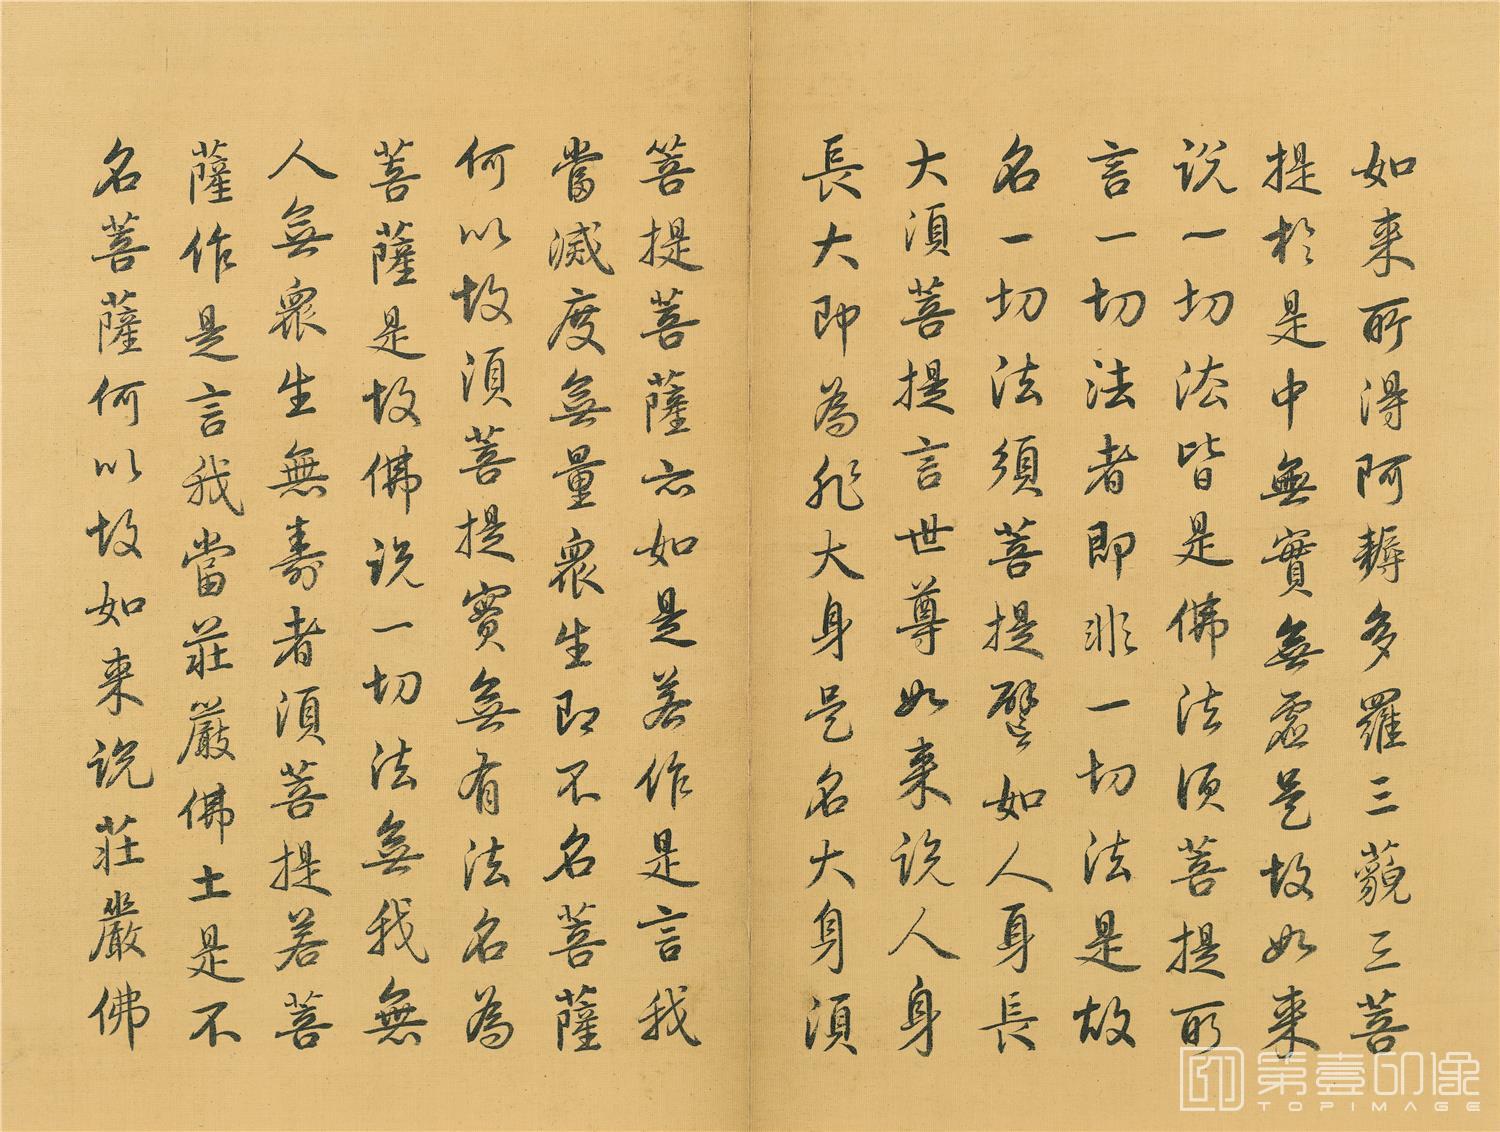 如来所得阿耨多羅三藐三菩
提於是中無實無虛是故如来
說一切法皆是佛法須菩提所
言一切法者即非一切法是故
名一切法須菩提譬如人身長
大須菩提言世尊如来說人身
長大即為非大身是名大身須
菩提菩薩亦如是若作是言我
當滅度無量眾生即不名菩薩
何以故須菩提實無有法名為
菩薩是故佛說一切法無我無
人無眾生無壽者須菩提若菩
薩作是言我當莊嚴佛土是不
名菩薩何以故如来說莊嚴佛
第壹印像
TOPIMAGE